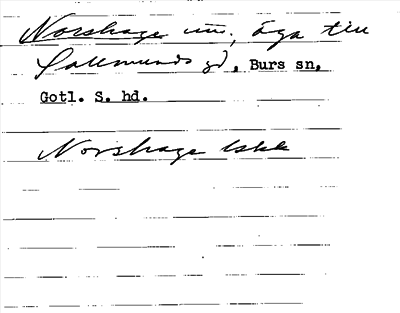 Norshage un., äga till
Sallmunds gd, Burs sn,
Gotl. S. hd.
Norshage Iskk